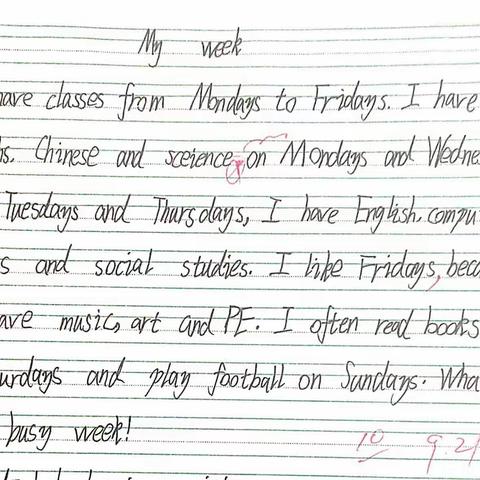 My week
have classes from Mondays to Fridays. I have
hs. Chinese and sceience on Mondays and Wedne
Tuesdays and Thursdays, I have English. compu
s and social studies. I like Fridays, beca
ave music, art and PE. I often read books
urdays and play football on Sundays. Wha
busy week!
10 9.21